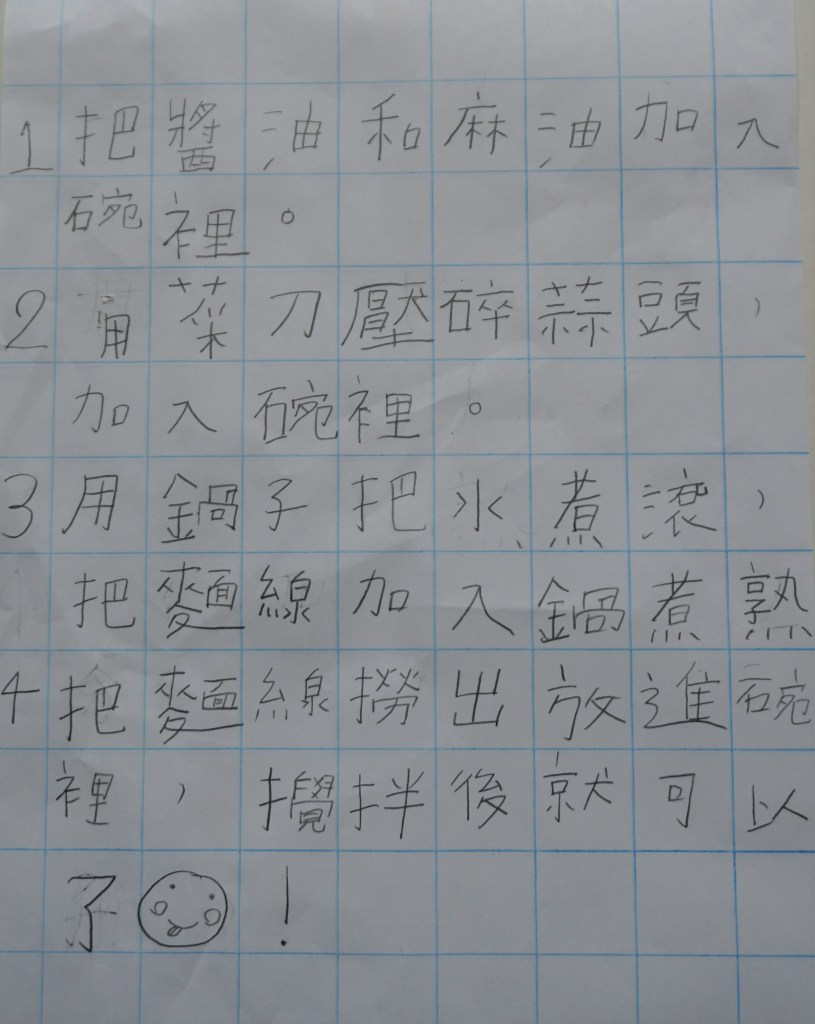 1 把醬油和麻油加入
碗裡。
2 用菜刀壓碎蒜頭,
加入碗裡。
3 用鍋子把水煮滾,
把麵線加入鍋煮熟
4 把麵線撈出放進碗
裡,攪拌後就可以
了!